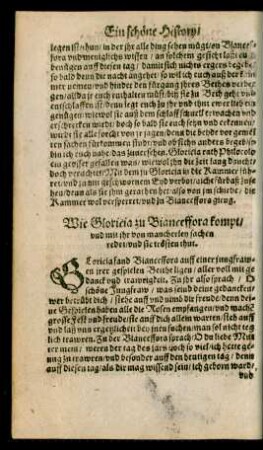 Ein schöne History/
legen ist/ thun/ in der ihr alle ding sehen mügt/ on Biancef-
fora vnd meniglichs wissen/ an solchem gesicht last euch
benügen auff diesen tag/ damit sich nichts ergers begebe/
so bald denn die nacht angehet/ so wil ich euch auß der Kam-
mer nemen/ vnd hinder den fürgang jhres Bethes verber-
gen/ allda jr euch enthalten müst/ biß sie zu Beth geht vnd
entschlaffen ist/ denn legt euch zu jhr/ vnd thut ewer lieb ein
genügen/ wiewol sie auß dem schlaff schnell erwachen vnd
erschrecken wirdt/ doch so bald sie euch sehn vnd erkennen/
wurde sie alle forcht von jr jagen/ denn die beyde vor gemel-
ten sachen fürkommen sindt/ vnd ob sichs anders begeb/ so
bin ich euch nahe/ das zuuersehen. Gloricia rath Philocolo
gewiser gefallen was/ wiewol jhn die zeit lang dauchte
doch verachten/ Mit dem zu Gloricia in die Kammer füh-
ret/ vnd mit geschwornem Eyd verbot/ nicht fürbaß zu-
thun/ denn als sie jhm gerathen het/ also von jm schiede/ die
Kammer wol versperret/ vnd hinweg gieng.
Wie Gloricia zu Bianceffora kompt/
vnd mit jhr von mancherley sachen
redet/ vnd sie trösten thut.
GLoricia fand Bianceffora auff einer jungfraw-
en jrer gespielen Bethe ligen/ aller voll mit ge-
danck vnd trawrigkeit. Zu jhr also sprach/ O
schöne Jungfraw/ was seind deine gedancken/
wer betrübt dich/ stehe auff vnd nimb dir freude/ denn dei-
ne Gespielen haben alle die Rosen empfangen/ vnd machē
grosse Fest vnd freude/ sie auff dich allein warten/ steh auff
vnd laß vns ergetzlicheit bey jnen suchen/ man sol nicht teg-
lich trawren. Zu der Bianceffora sprach/ O du liebe Mut-
ter mein/ weren der tag des jars noch so viel/ ich hette ge-
nug zu trawren/ vnd besonder auff den heutigen tag/ denn
auff diesen tag/ als dir mag wissend sein/ ich geborn ward/
vnd